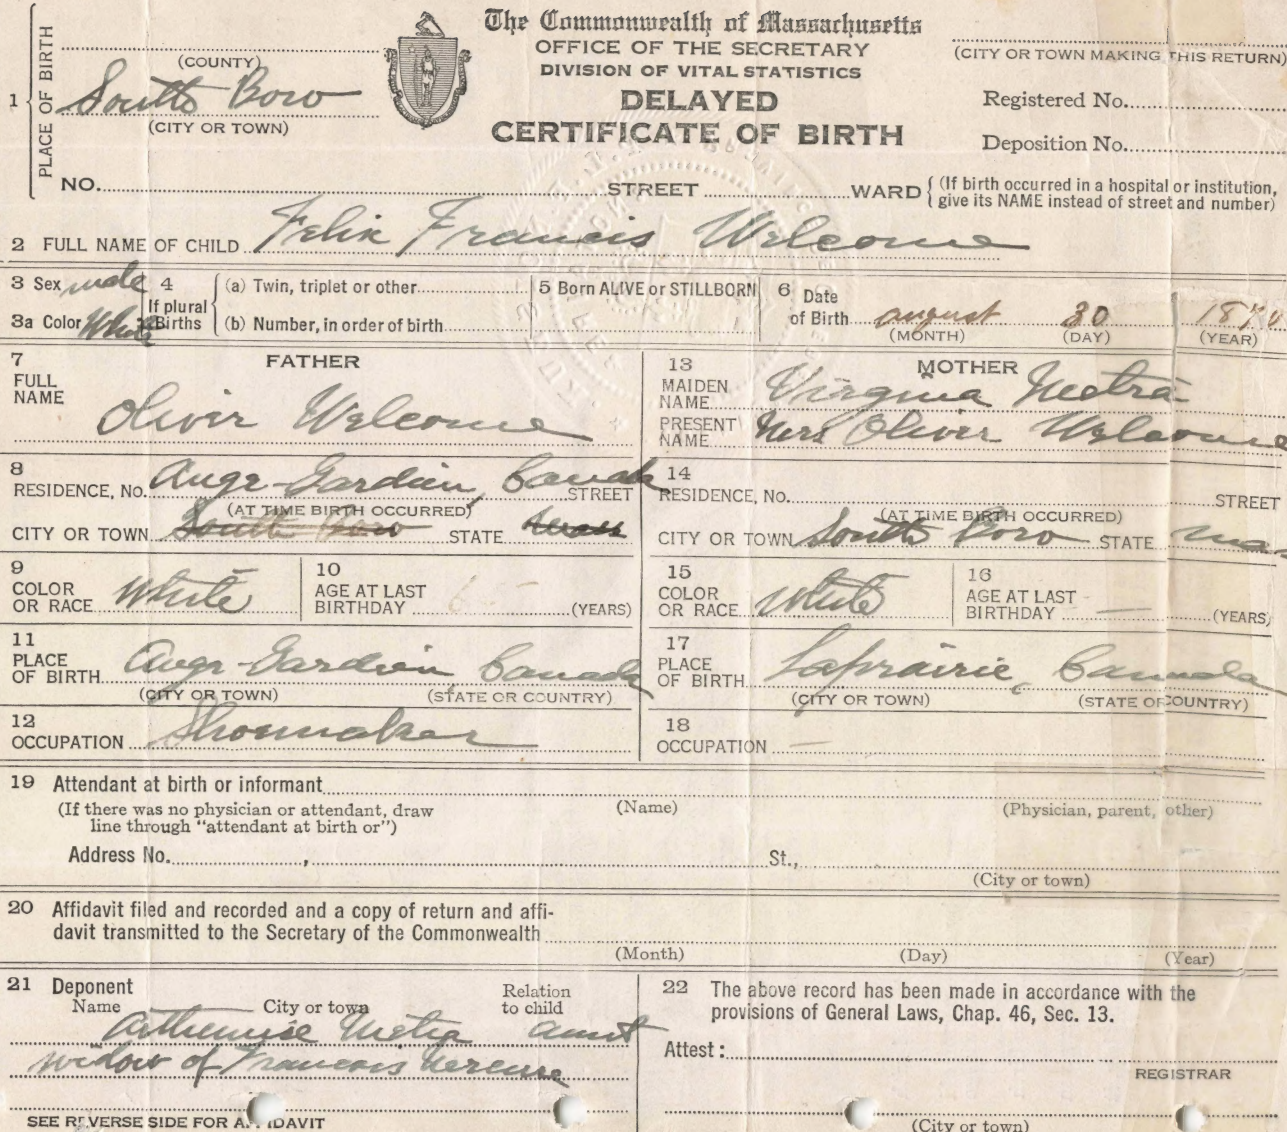 The Commonwealth of Massachusetts
OFFICE OF THE SECRETARY
DIVISION OF VITAL STATISTICS
DELAYED
CERTIFICATE OF BIRTH
(CITY OR TOWN MAKING THIS RETURN)
Registered No.
Deposition No.
1 PLACE OF BIRTH
(COUNTY)
South Boro
(CITY OR TOWN)
NO. STREET WARD (If birth occurred in a hospital or institution, give its NAME instead of street and number)
2 FULL NAME OF CHILD Felix Francis Welcome
3 Sex male
3a Color White
4 If plural Births
(a) Twin, triplet or other
(b) Number, in order of birth
5 Born ALIVE or STILLBORN
6 Date of Birth august 30
(MONTH) (DAY) (YEAR)
7 FATHER
FULL NAME
Oliver Welcome
8 RESIDENCE, No. Ange-Gardien, Canada STREET
(AT TIME BIRTH OCCURRED)
CITY OR TOWN South Boro STATE Mass
9 COLOR OR RACE White
10 AGE AT LAST BIRTHDAY (YEARS)
11 PLACE OF BIRTH Ange-Gardien Canada
(CITY OR TOWN) (STATE OR COUNTRY)
12 OCCUPATION Shoemaker
13 MOTHER
MAIDEN NAME Virginia
PRESENT NAME Mrs Oliver Welcome
14 RESIDENCE, No. STREET
(AT TIME BIRTH OCCURRED)
CITY OR TOWN South Boro STATE Mas
15 COLOR OR RACE White
16 AGE AT LAST BIRTHDAY — (YEARS)
17 PLACE OF BIRTH Laprairie, Canada
(CITY OR TOWN) (STATE OF COUNTRY)
18 OCCUPATION —
19 Attendant at birth or informant
(If there was no physician or attendant, draw line through "attendant at birth or")
(Name) (Physician, parent, other)
Address No. , St.,
(City or town)
20 Affidavit filed and recorded and a copy of return and affi-
davit transmitted to the Secretary of the Commonwealth
(Month) (Day) (Year)
21 Deponent
Name City or town Relation to child
aunt
widow of Francois
SEE REVERSE SIDE FOR AFFIDAVIT
22 The above record has been made in accordance with the
provisions of General Laws, Chap. 46, Sec. 13.
Attest:
REGISTRAR
(City or town)